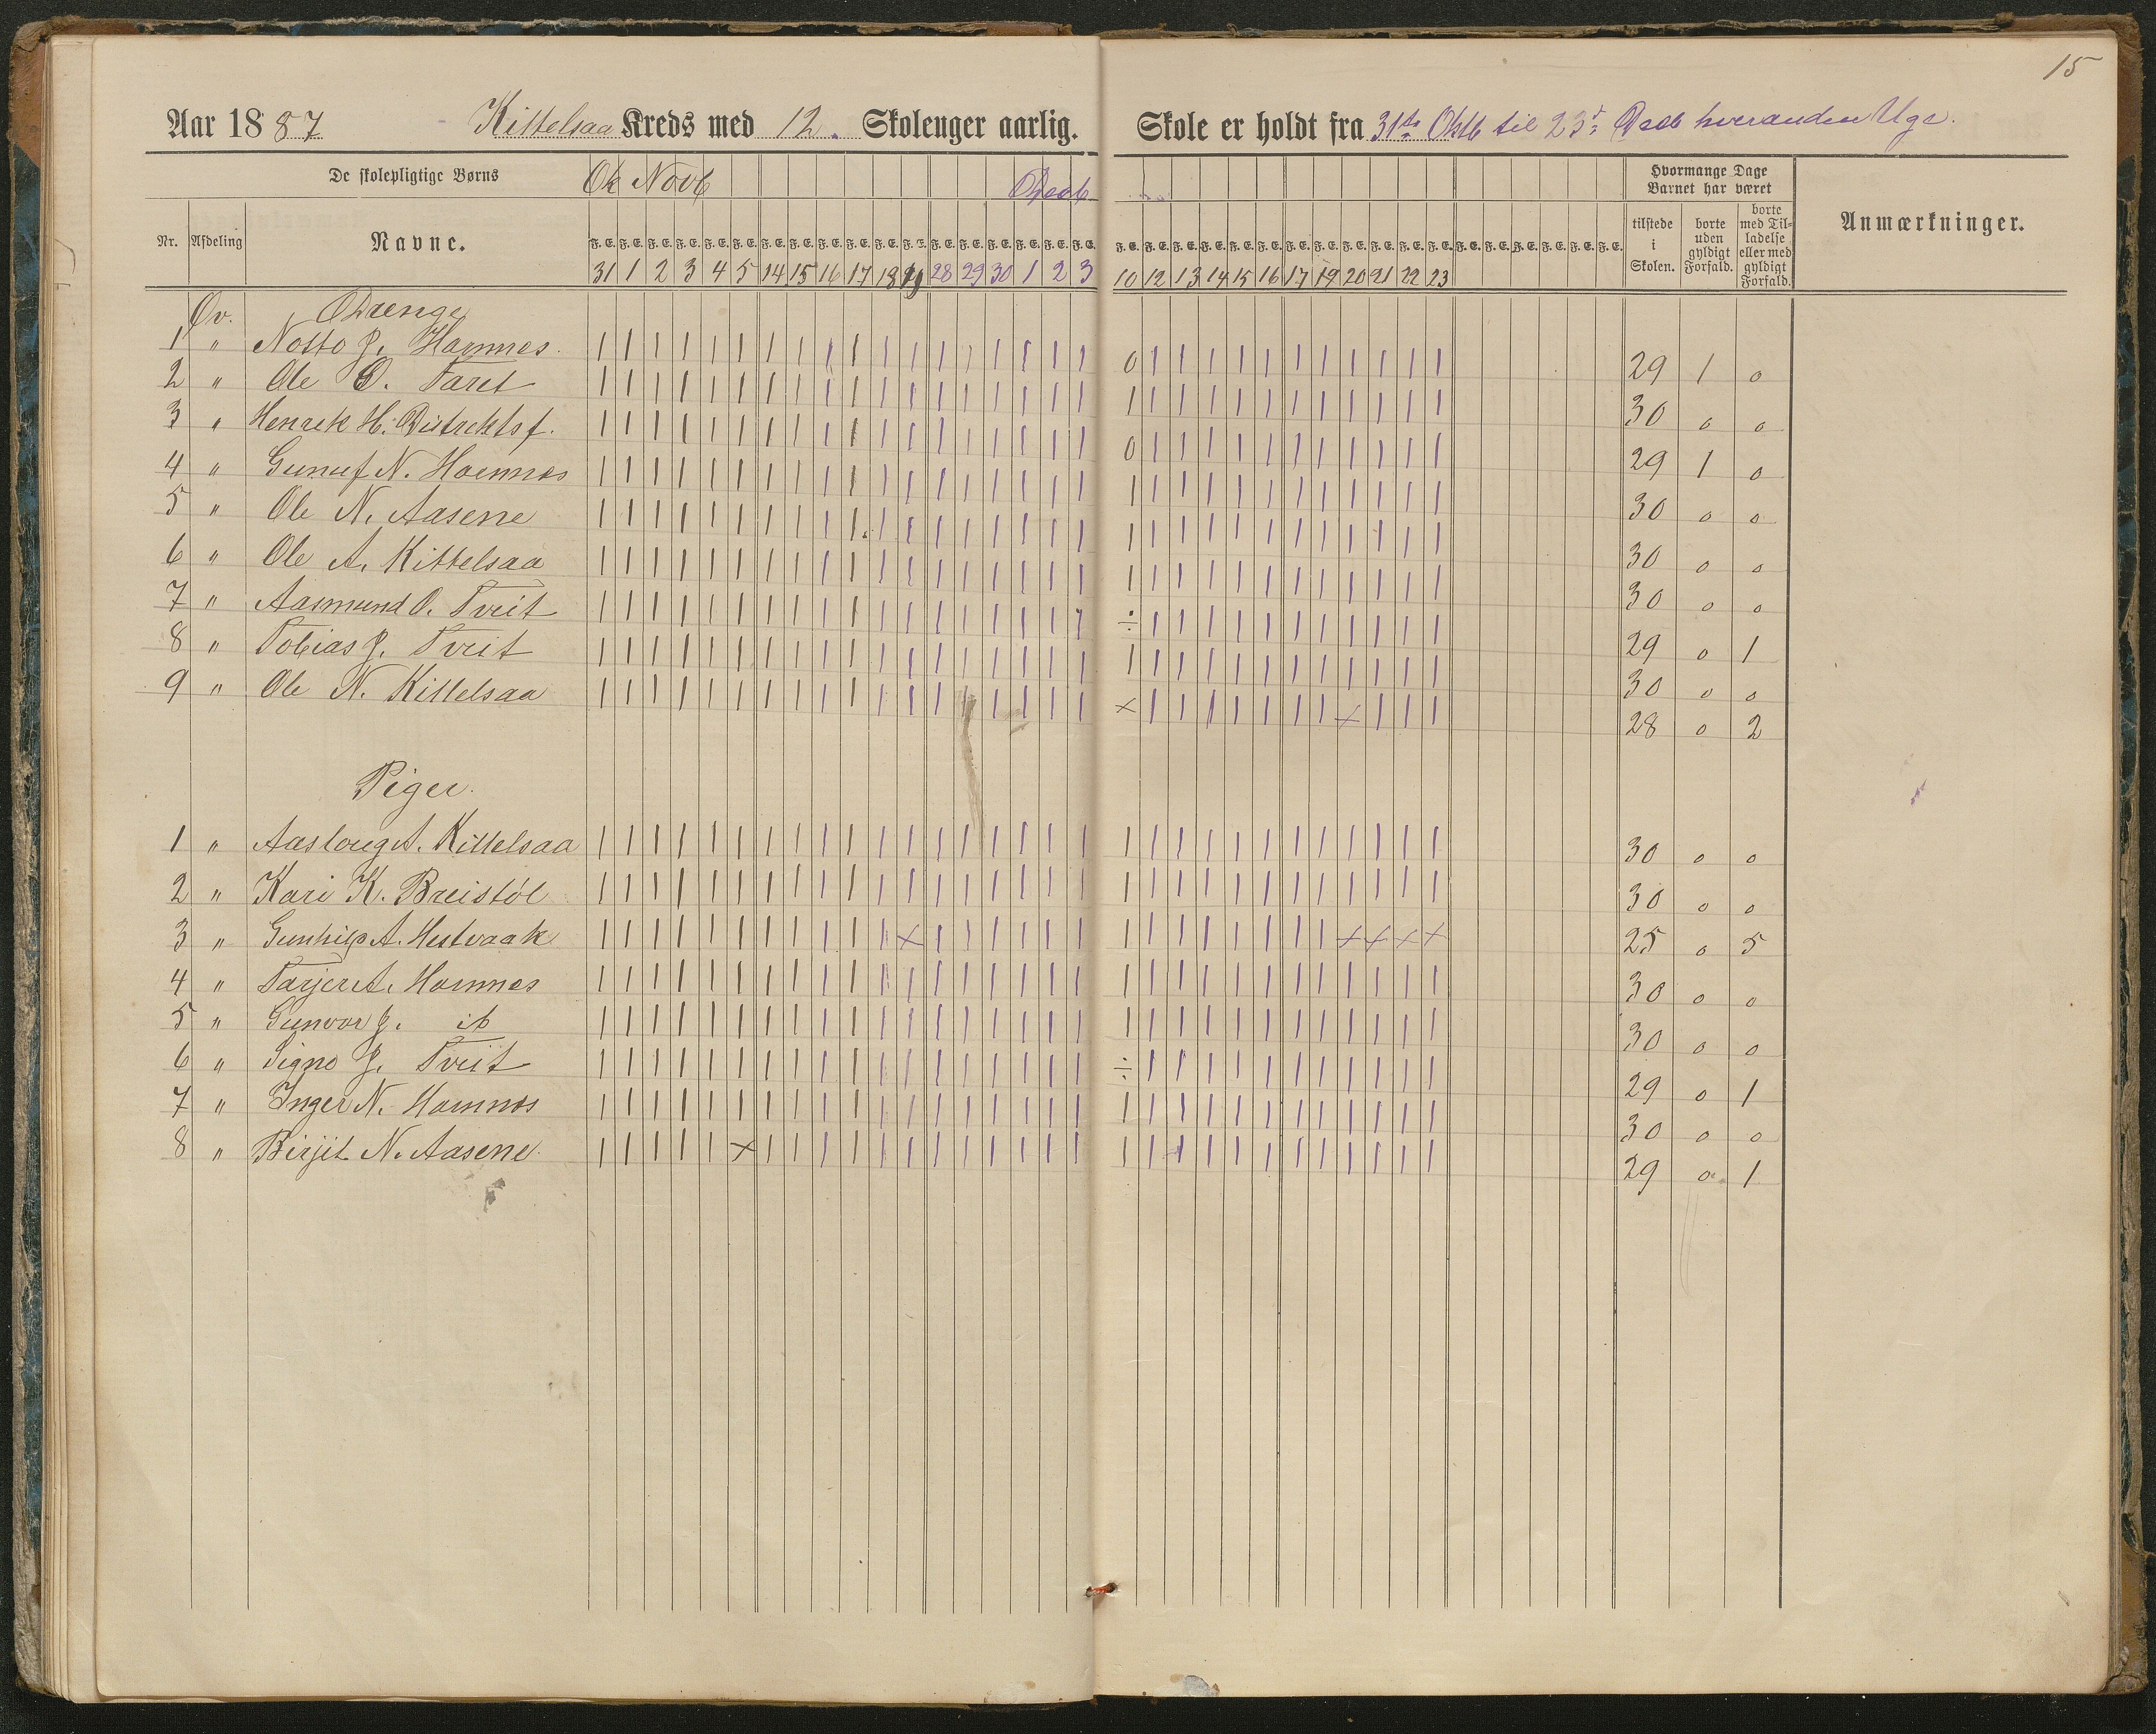 15
Aar 1887 Kittelsaa Kreds med 12. Skoleuger aarlig. Skole er holdt fra 31te Oktb til 23de Decb hveranden Uge.
De skolepligtige Børns Ok Novb Decb Hvormange Dage Barnet har været
Nr. Afdeling Navne. F. E. F. E. F. E. F. E. F. E. F. E. F. E. F. E. F. E. F. E. F. E. F. E. F. E. F. E. F. E. F. E. F. E. F. E. F. E. F. E. F. E. F. E. F. E. F. E. F. E. F. E. F. E. F. E. F. E. F. E. F. E. F. E. F. E. F. E. F. E. F. E. tilstede i Skolen. borte uden gyldigt Forfald. borte med Tilladelse eller med gyldigt Forfald. Anmærkninger.
31 1 2 3 4 5 14 15 16 17 18 19 28 29 30 1 2 3 10 12 13 14 15 16 17 19 20 21 22 23
Øv. Drenge
1 " Notto J. Hamnes. | | | | | | | | | | | | | | | | | | 0 | | | | | | | | | | | 29 1 0
2 " Ole O. Taret | | | | | | | | | | | | | | | | | | | | | | | | | | | | | | 30 0 0
3 " Henrek H. | | | | | | | | | | | | | | | | | | 0 | | | | | | | | | | | 29 1 0
4 " Gunuf N. Hamnes | | | | | | | | | | | | | | | | | | | | | | | | | | | | | | 30 0 0
5 " Ole N. Aasene | | | | | | | | | | | | | | | | | | | | | | | | | | | | | | 30 0 0
6 " Ole A. Kittelsaa | | | | | | | | | | | | | | | | | | | | | | | | | | | | | | 30 0 0
7 " Aasmund O. Tveit | | | | | | | | | | | | | | | | | | ÷ | | | | | | | | | | | 29 0 1
8 " Tobias J. Tveit | | | | | | | | | | | | | | | | | | | | | | | | | | | | | | 30 0 0
9 " Ole N. Kittelsaa | | | | | | | | | | | | | | | | | | × | | | | | | | × | | | 28 0 2
Piger.
1 " Aasloug A. Kittelsaa | | | | | | | | | | | | | | | | | | | | | | | | | | | | | | 30 0 0
2 " Kari K. Breistöl | | | | | | | | | | | | | | | | | | | | | | | | | | | | | | 30 0 0
3 " Gunhild A. Hestvaak | | | | | | | | | | | × | | | | | | | | | | | | | | × × × × 25 0 5
4 " Tarjer A. Hamnes | | | | | | | | | | | | | | | | | | | | | | | | | | | | | | 30 0 0
5 " Gunvor J. ib | | | | | | | | | | | | | | | | | | | | | | | | | | | | | | 30 0 0
6 " Signo J. Tveit | | | | | | | | | | | | | | | | | | ÷ | | | | | | | | | | | 29 0 1
7 " Inger N. Hamnes | | | | | | | | | | | | | | | | | | | | | | | | | | | | | | 30 0 0
8 " Birjit N. Aasene. | | | | | × | | | | | | | | | | | | | | | | | | | | | | | | 29 0 1